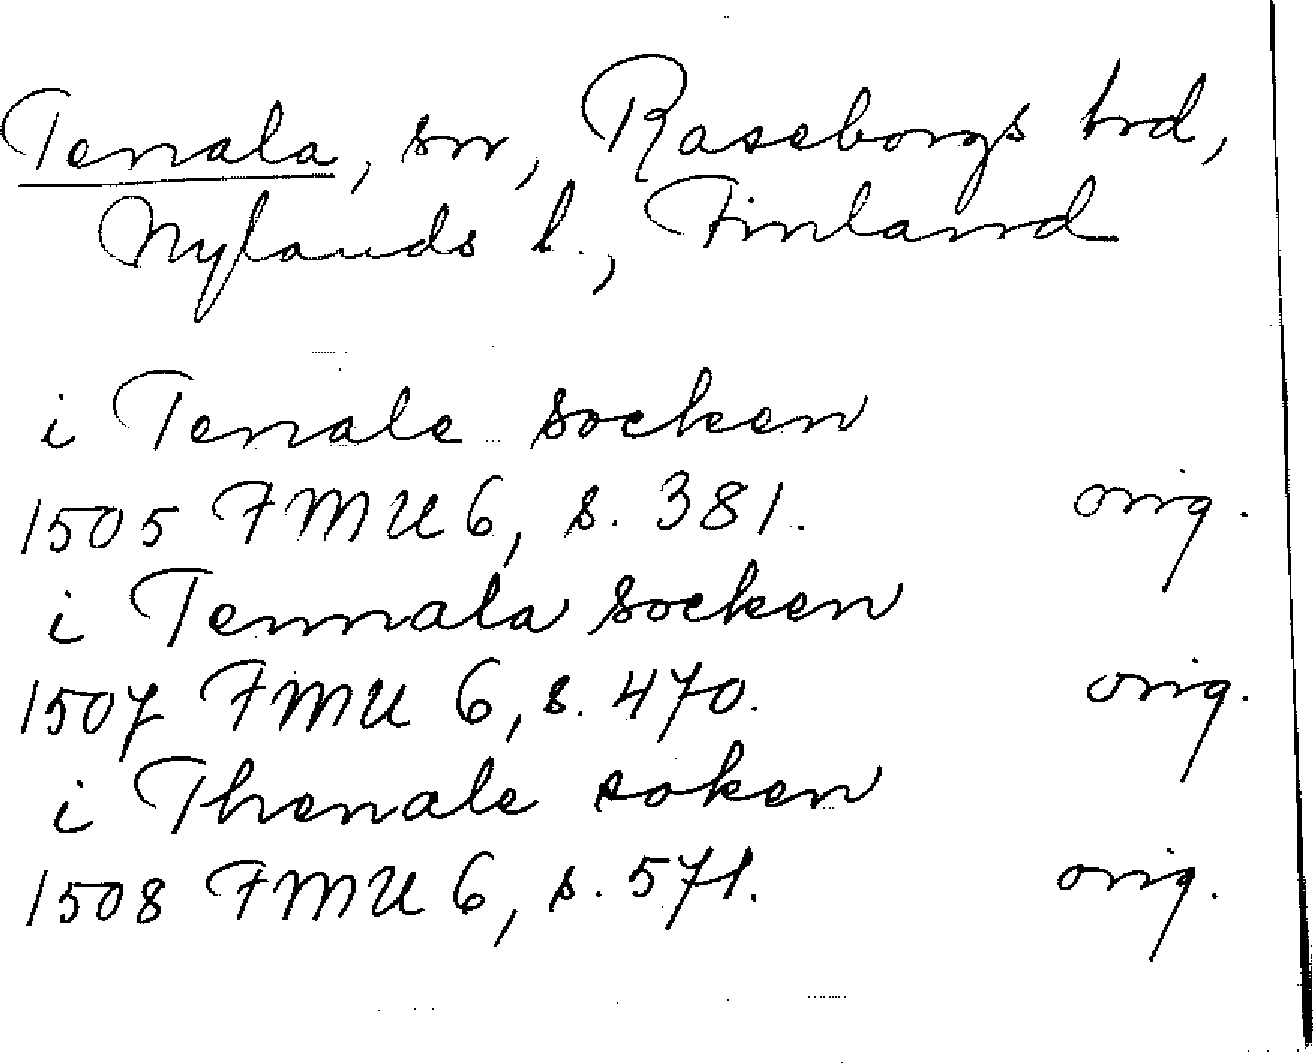 Tenala, sn, Raseborgs hrd,
Nylands l., Finland
i Tenale socken
1505 FMU 6, s. 381. orig.
i Tennala socken
1507 FMU 6, s. 470. orig.
i Thenale soken
1508 FMU 6, s. 571. orig.